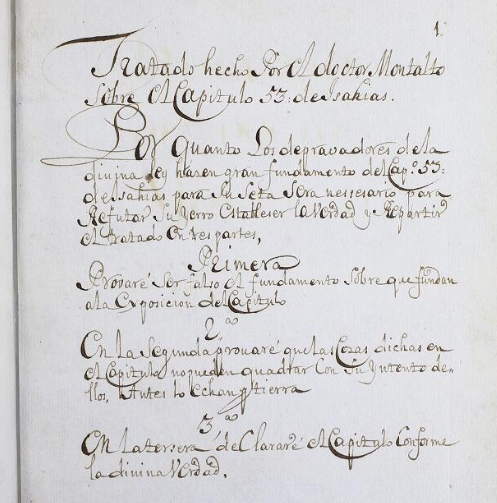 1.
Tratado hecho Por el doctor Montalto
Sobre el Capitulo 53: de Isahias.
Por quanto Los depravadores de la
divina Ley hazen gran fundamento del Cap.º 53:
de Isahias para su seta sera nessesario para
Refutar su yerro Estableser la verdad y Repartir
el tratado en tres partes,
Primera
Provaré ser falso el fundamento sobre que fundan
a la Exposicion del Capitulo
2ª
En la Segunda provaré que las Cozas dichas en
el Capitulo no pueden quadrar con su yntento de-
llos, Antes lo Echan p tierra
3ª
En la tersera de Clararé el Capitulo Conforme
la divina Verdad.